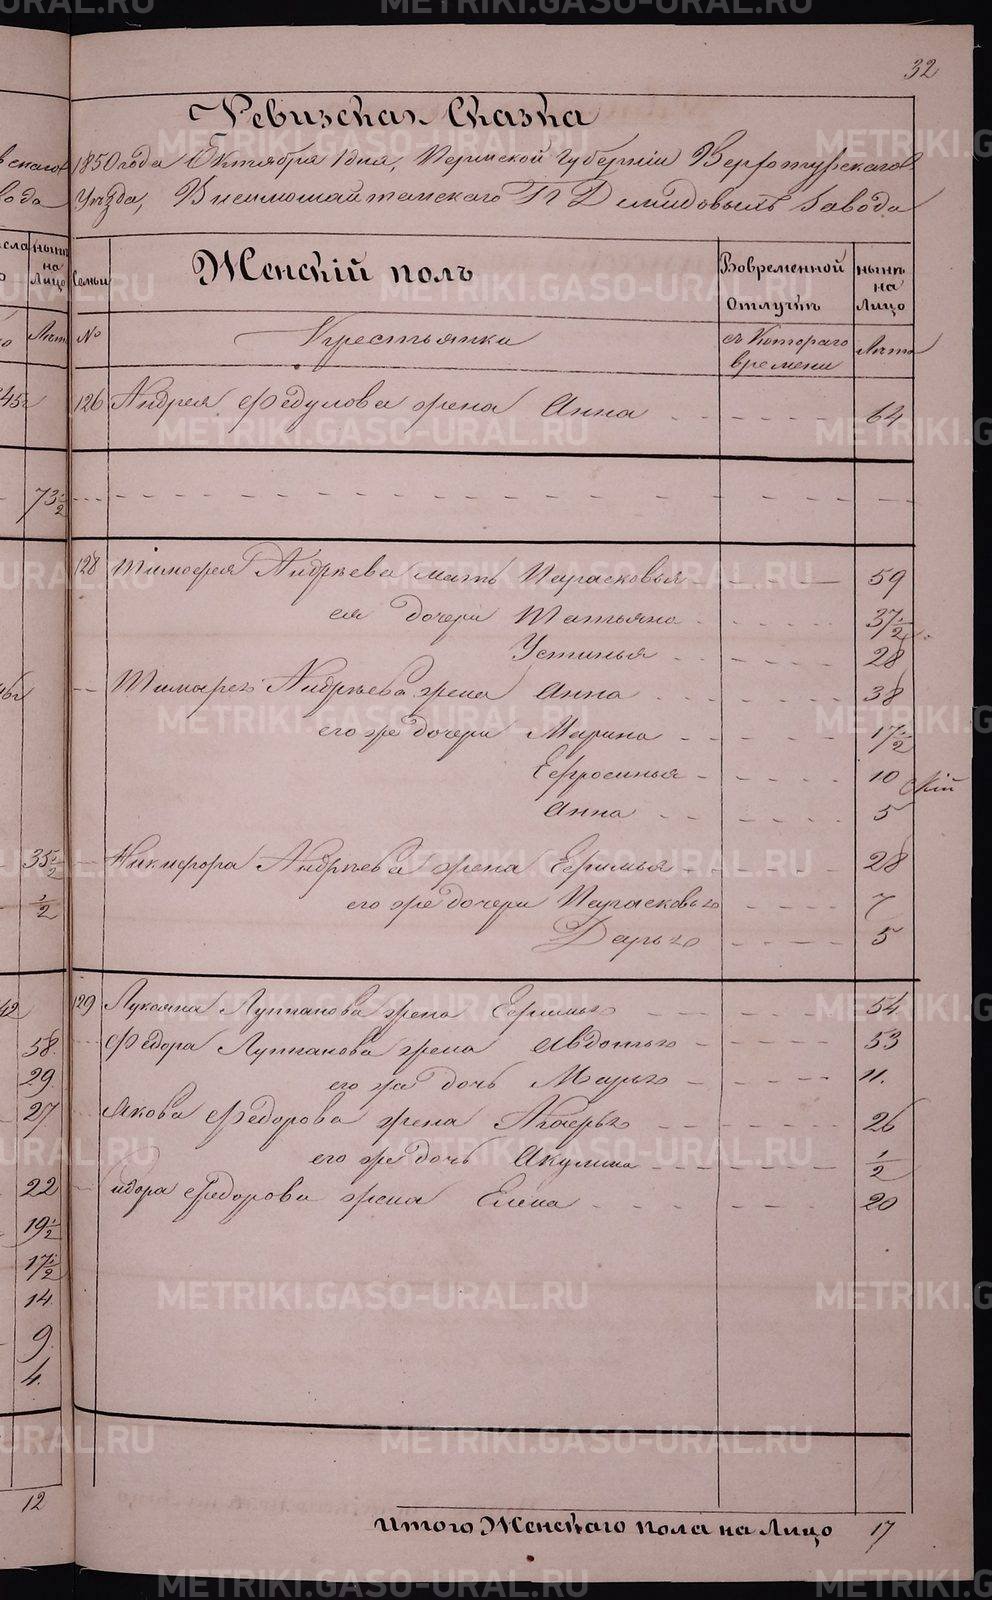 32
Ревизская Сказка
1850 года Октября 1 дня, Пермской Губернiи Верхотурскаго
Уѣзда, Висимошайтанскаго Гг Демидовыхъ Завода
Женскiй полъ
Вовременной
Отлучкѣ
нынѣ
на
Лицо
Семьи
№
Крестьянки
съ Котораго
времени
Лѣта
126 Андрея Федулова жена Анна 64
128 Тимофея Андрѣева мать Парасковья 59
ея дочери Татьяна 37 1/2
Устинья 28
Тимофея Андрѣева жена Анна 38
его же дочери Марина 17 1/2
Ефросинья 10
Анна 5
Никифора Андрѣева жена Ефимья 28
его же дочери Парасковья 7
Дарья 5
129 Лукояна Луппанова жена Ефимья 54
Федора Луппанова жена Авдотья 53
его же дочь Марья 11.
Якова Федорова жена 26
его же дочь Акулина 1/2
Федорова жена Елена 20
Итого Женскаго пола на Лицо 17
нынѣ
на
Лицо
Лѣта
73 1/2
35 1/2
1/2
58.
29.
27
22
19 1/2
17 1/2
14.
9.
4.
12
METRIKI.GASO-URAL.RU